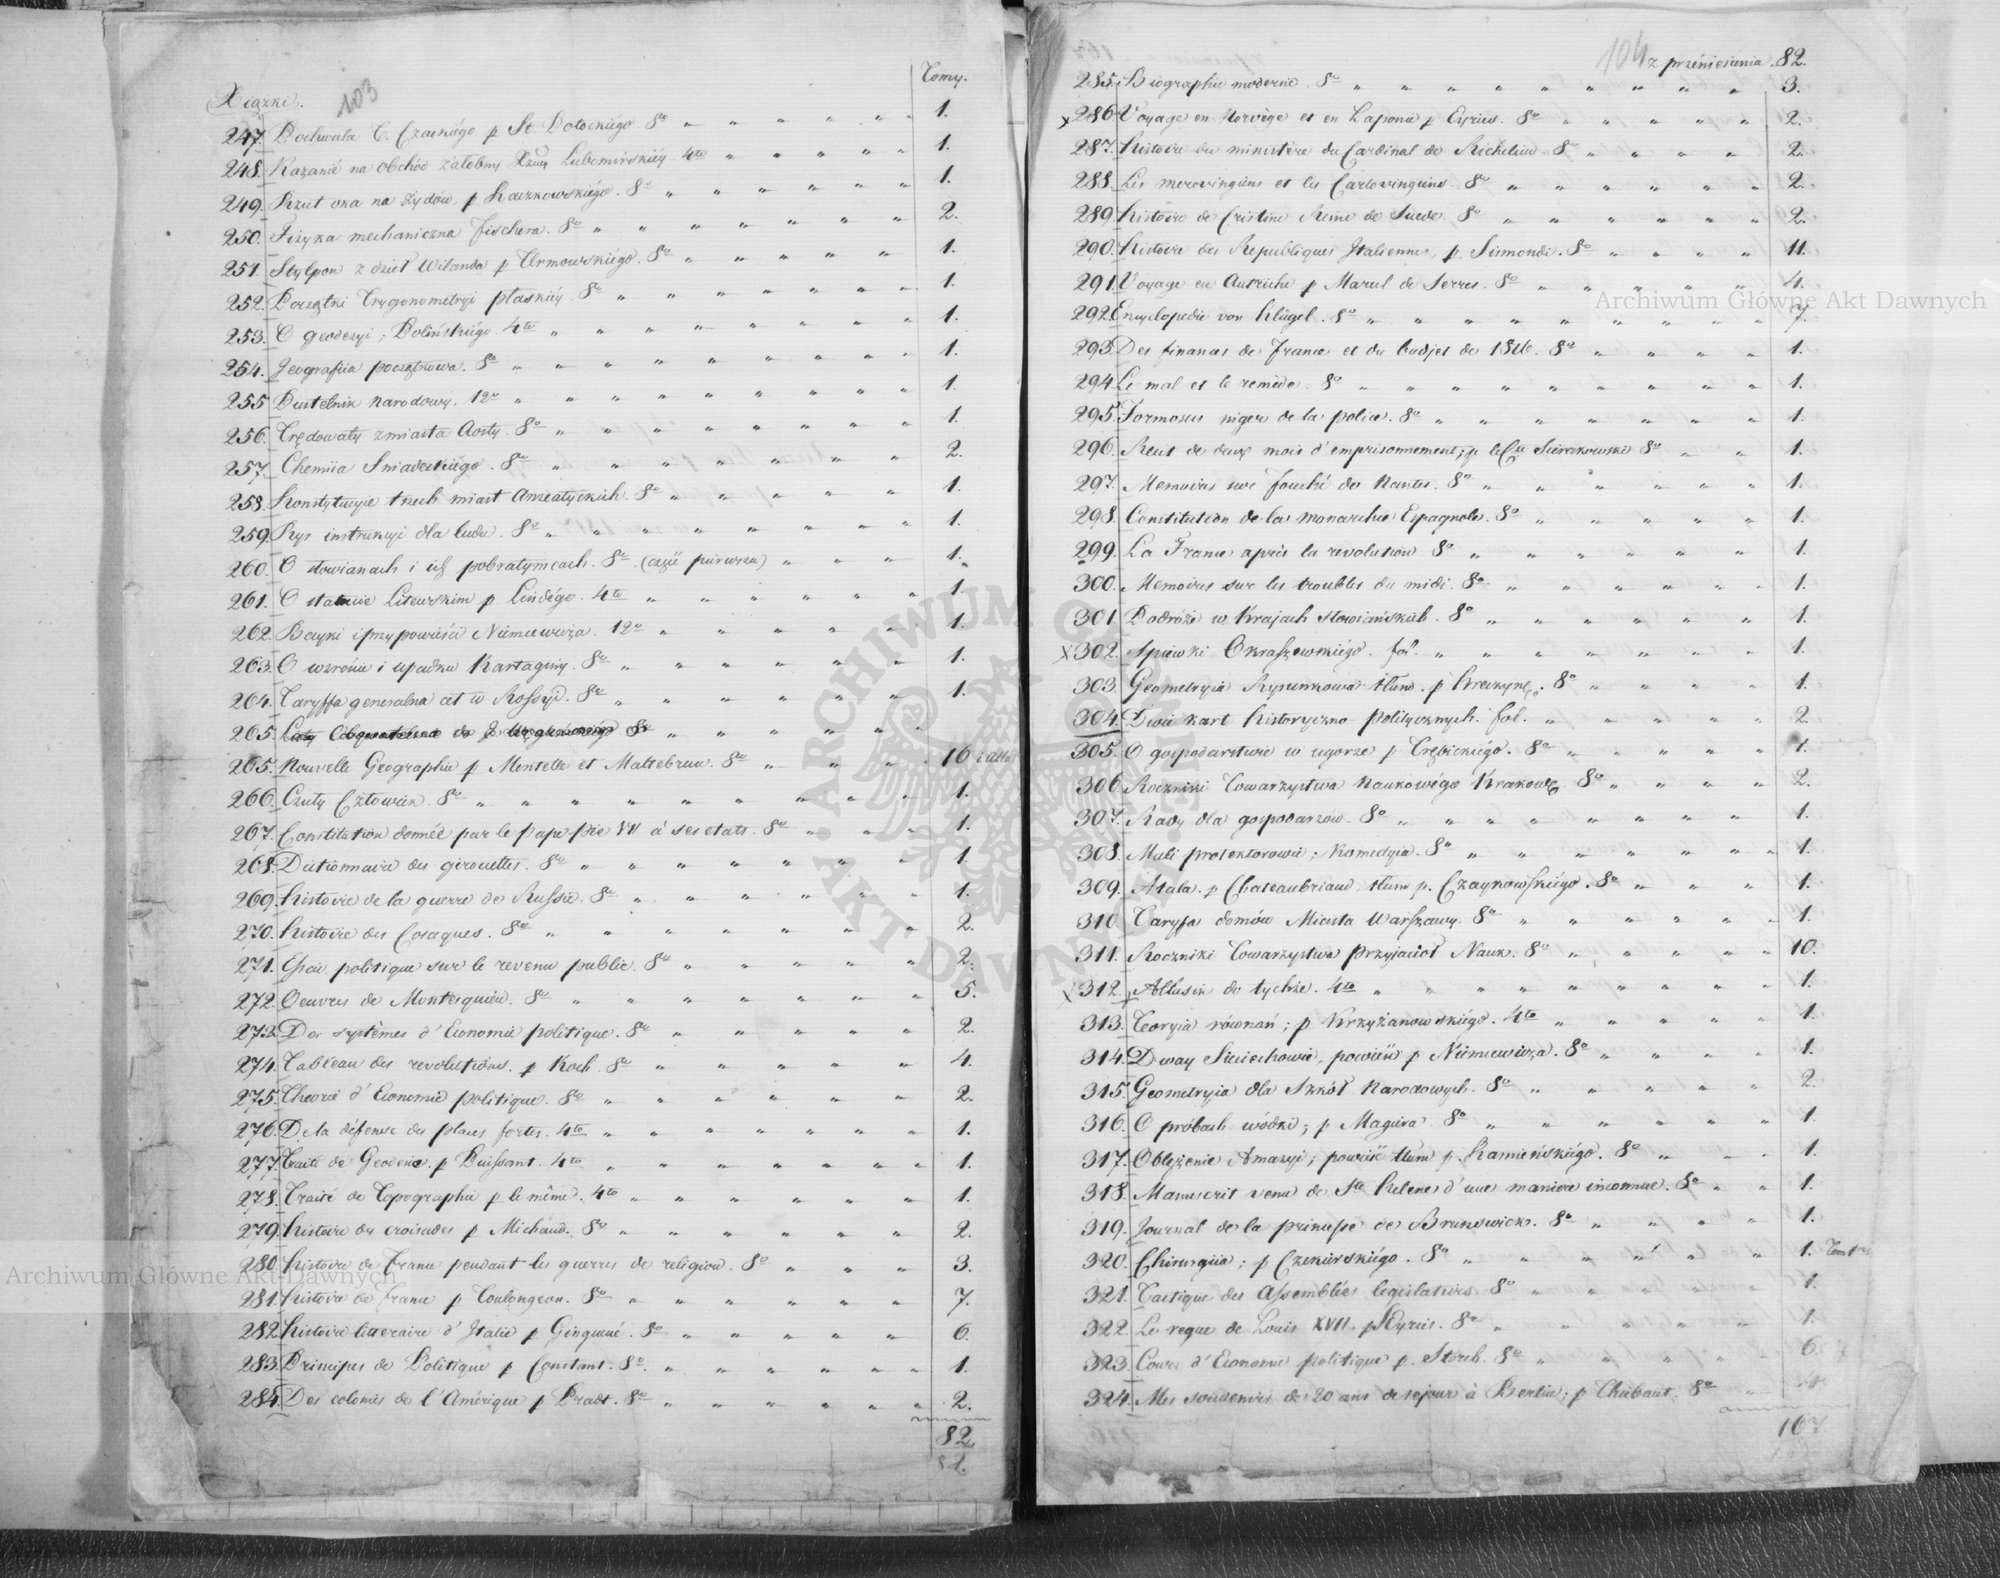 103
Xiążki. Tomy.
247. Pochwała T. Czackiégo p St. Potockiégo. 8o 1.
248. Kazanié na obchód żałobny Xżnéy Lubomirskiéy. 4to 1.
249. Rzut oka na Żydów, p Łaczkowskiégo. 8o 1.
250. Fizyka mechaniczna Fischera. 8o 2.
251. Stylpon z dzieł Wilanda p 8o 1.
252. Początki Trygonometryi płaskiéy. 8o 1.
253. O geodezyi; Polińskiégo. 4to 1.
254. Jeografiia początkowa. 8o 1.
255 Pustelnik narodowy. 12o 1.
256. Trędowaty z miasta Aosty. 8o 1.
257. Chemiia Sniadeckiégo. 8o 2.
258. Konstytucyie trzech miast Anzeatyckich. 8o 1.
259. Rys instrukcyi dla ludu. 8o 1.
260. O słowianach i ich pobratymcach. 8o (część pierwsza) 1.
261. O statucie Litewskim p Lindégo. 4to 1.
262. Bayki i przypowieści Niemcewicza. 12o 1.
263. O wzroście i upadku Kartaginy. 8o 1.
264. Taryffa generalna ceł w Rossyi. 8o 1.
265. Listy Obywatelskie do J. 8o
265. Nouvelle Geographie p Mentelle et Maltebrun. 8o 16 i atlas
266. Czuły Człowiek. 8o 1.
267. Constitution donnéé par le Pape Pie VII à ses etats. 8o 1.
268. Dictionnaire des girouettes. 8o 1.
269. Histoire de la guerre de Russie. 8o 1.
270. Histoire des Cosaques. 8o 2.
271. Essai politique sur le revenu public. 8o 2.
272. Oeuvres de Montesquieu. 8o 5.
273. Des systèmes d'Economie politique. 8o 2.
274. Tableau des revolutions. p Koch. 8o 4.
275. Theorié d'Economié politique. 8o 2.
276. De la défense des places fortes. 4to 1.
277. Traité de Geodésie. p Puissant. 4to 1.
278. Traité de Topographie p le même. 4to 1.
279. Histoire des croisades p Michaud. 8o 2.
280. Histoire de France pendant les guerres de religion. 8o 3.
281. Histoire de France p Toulongeon. 8o 7.
282. Histoire litteraire d'Italie p Ginguené. 8o 6.
283. Principes de Politique p Constant. 8o. 1.
284. Des colonies de l'Amérique p Pradt. 8o 2.
82.
104 z przéniesiénia. 82.
285. Biographie moderne. 8o 3.
x 286. Voyage en Norvège et en Laponie p Eyriès. 8o 2.
287. Histoire du ministère du Cardinal de Richelieu. 8o 2.
288. Les merovingiens et les Carlovingiens. 8o 2.
289. Histoire de Cristine Reine de Suede. 8o 2.
290. Histoire des Republiques Italiennes, p Sismondi. 8o 11.
291. Voyage en Autriche p Marcel de Serres. 8o 4.
292. Encyclopedie von Klügel. 8o 7.
293. Des finances de France et du budjet de 1816. 8o 1.
294. Le mal et le remède. 8o 1.
295. niger de la police. 8o 1.
296. Recit de deux mois d'emprisonnement; p le Cte Sierakowski 8o 1.
297. Memoires sur Fouché de Nantes. 8o 1.
298. Constitution de la monarchie Espagnole. 8o 1.
299. La France après la revolution 8o 1.
300. Memoires sur les troubles du midi. 8o 1.
301. Podróże w Krajach słowiańskich. 8o 1.
x 302. Spiéwki Okraszewskiégo. fol. 1.
303. Geometryia Rysunkowa tłum. p 8o 1.
304. Dwié kart historyczno politycznych. fol. 2.
305. O gospodarstwie w ugorze p Trębickiégo. 8o 1.
306. Roczniki Towarzystwa Naukowégo Krakow 8o 2.
307. Rady dla gospodarzów. 8o 1.
308. Mali protektorowie; Komedyia. 8o 1.
309. Atala. p Chateaubriand, tłum p. Czaykowskiégo. 8o 1.
310. Taryfa domów Miasta Warszawy. 8o 1.
311. Roczniki Towarzystwa Przyjaciół Nauk. 8o 10.
x 312. 4to 1.
313. Teoryia równań; p Krzyżanowskiégo. 4to 1.
314. Dway Sieciechowie, powieść p Niémcewicza. 8o 1.
315. Geometryia dla Szkół Narodowych. 8o 2.
316. O próbach wódki; p Magiera. 8o 1.
317. Oblężenie Amazyi; powieść tłum p. Kamieńskiégo. 8o 1.
318. Manuscrit venu de Ste Helene d'une maniere inconnue. 8o 1.
319. Journal de la princesse de Brunswick. 8o 1.
320. Chirurgiia; p Czekierskiégo. 8o 1. Tom 1
321. Tactique des Assemblées legislatives. 8o 1.
322. Le regne de Louis XVII. p 8o 1.
323. Cours d'Economie politique p. Storch. 8o 6.
324. Mes souvenirs de 20 ans de sejour à Berlin; p Thiebaut. 8o
167
Archiwum Główne Akt Dawnych
Archiwum Główne Akt Dawnych
ARCHIWUM GŁÓWNE AKT DAWNYCH